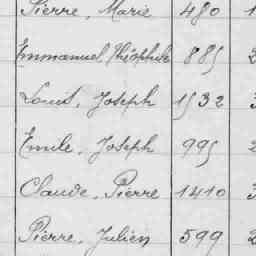 Pierre, Marie 480 1
Emmanuel, Théophile 885 2
Louis, Joseph 1532 3
Emile, Joseph 995 2
Claude, Pierre 1410 3
Pierre, Julien 599 2